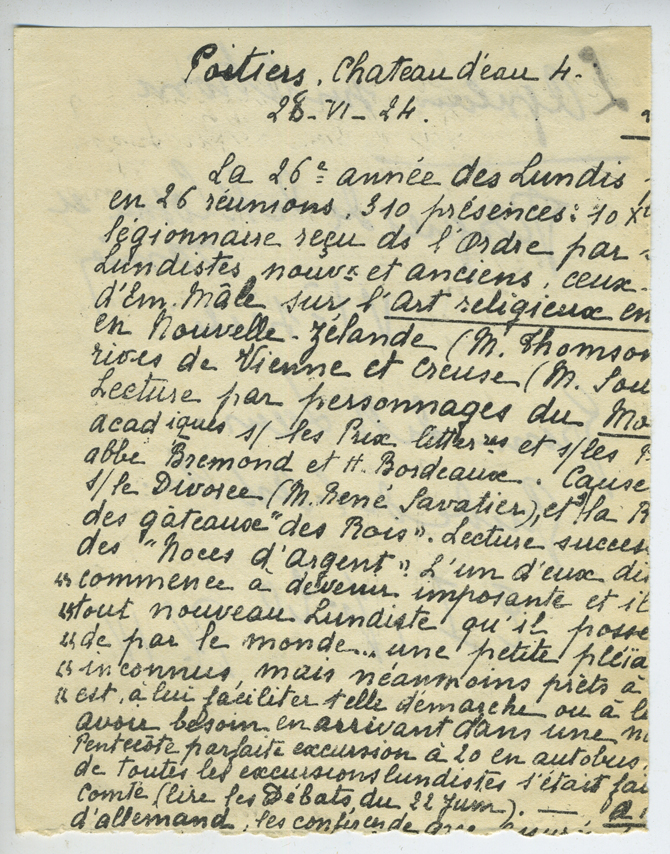 Poitiers, Chateau d'eau 4.
28-VI-24.
La 26e année des Lundis
en 26 réunions, 310 présences: 10 X
légionnaire reçu ds l'Ordre par
Lundistes, nouvx et anciens, ceux
d'Em. Mâle sur l'Art religieux en
en Nouvelle-Zélande (M. Thomson
rives de Vienne et Creuse (M. Sou
Lecture par personnages du Mo
acadiques s/ les Prix littérres et s/les
abbé Bremond et H. Bordeaux. Cause
s/le Divorce (M. René Savatier), et s/la R
des gâteaux "des Rois". Lecture succes
des "Noces d'Argent". L'un d'eux dis
"commence à devenir imposante et il
"tout nouveau Lundiste qu'il posse
"de par le monde... une petite pleïa
"inconnus, mais néanmoins prêts à
"est, à lui faciliter telle démarche ou à l
avoir besoin en arrivant dans une n
Pentecôte parfaite excursion à 20 en autobus.
de toutes les excursions lundistes s'était fai
comté (lire les Débats, du 22 Juin). —
d'allemand, les conférces de